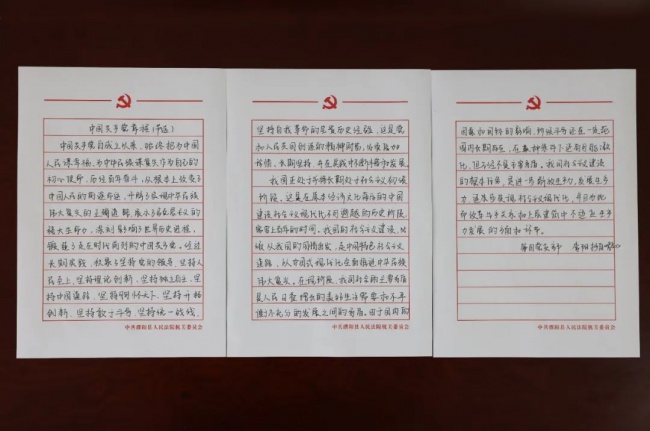 中国共产党章程(节选)
中国共产党自成立以来，始终把为中国
人民谋幸福、为中华民族谋复兴作为自己的
初心使命，历经百年奋斗，从根本上改变了
中国人民的前途命运，开辟了实现中华民族
伟大复兴的正确道路，展示了马克思主义的
强大生命力，深刻影响了世界历史进程，
锻造了走在时代前列的中国共产党。经过
长期实践，积累了坚持党的领导、坚持人
民至上、坚持理论创新、坚持独立自主、坚
持中国道路、坚持胸怀天下、坚持开拓
创新、坚持敢于斗争、坚持统一战线、
中共濮阳县人民法院机关委员会
坚持自我革命的宝贵历史经验，这是党
和人民共同创造的精神财富，必须倍加
珍惜、长期坚持，并在实践中不断丰富和发展。
我国正处于并将长期处于社会主义初级
阶段。这是在原本经济文化落后的中国
建设社会主义现代化不可逾越的历史阶段，
需要上百年的时间。我国的社会主义建设，必
须从我国的国情出发，走中国特色社会主义
道路，以中国式现代化全面推进中华民族
伟大复兴。在现阶段，我国社会的主要矛盾
是人民日益增长的美好生活需要和不平
衡不充分的发展之间的矛盾。由于国内的
中共濮阳县人民法院机关委员会
因素和国际的影响，阶级斗争还在一定范
围内长期存在，在某种条件下还有可能激
化，但已经不是主要矛盾。我国社会主义建设
的根本任务，是进一步解放生产力，发展生产
力，逐步实现社会主义现代化，并且为此
而改革生产关系和上层建筑中不适应生产
力发展的方面和环节。
中共濮阳县人民法院机关委员会